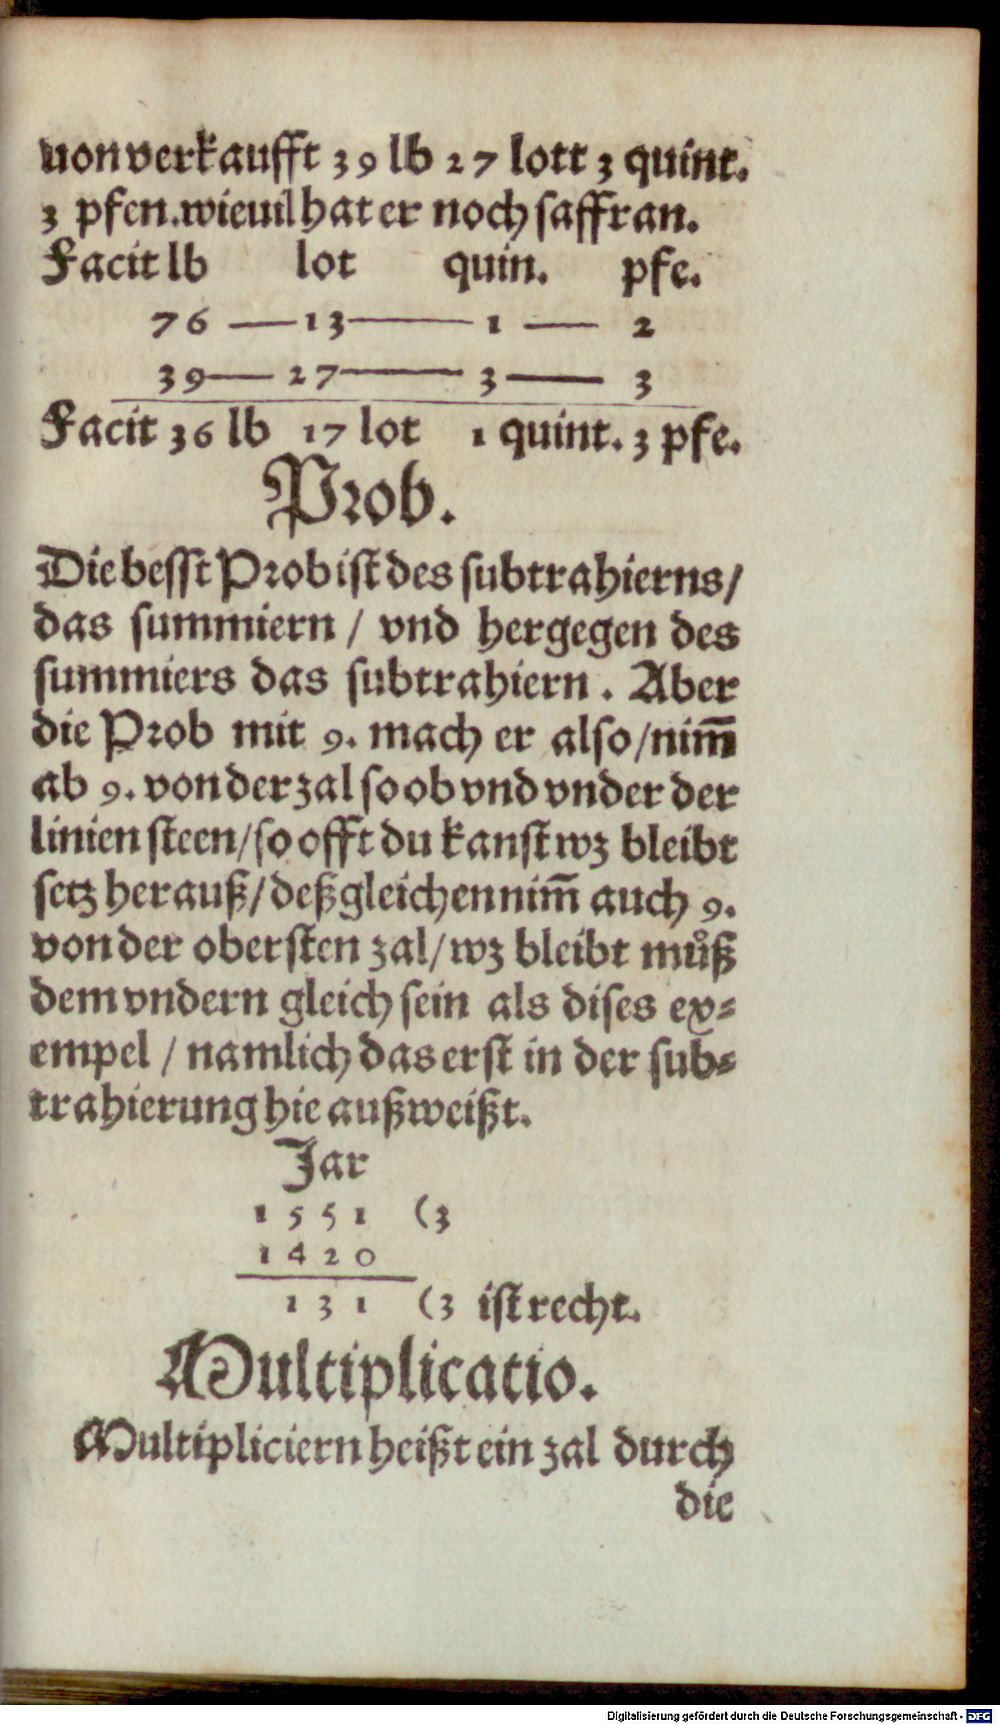 von verkaufft 39 lb 27 lott 3 quint.
3 pfen. wieuil hat er noch saffran.
Facit lb lot quin. pfe.
76 — 13 — 1 — 2
39 — 27 — 3 — 3
Facit 36 lb 17 lot 1 quint. 3 pfe.
Prob.
Die besst Prob ist des subtrahierns/
das summiern / vnd hergegen des
summiers das subtrahiern . Aber
die Prob mit 9. mach er also/nim̄
ab 9. von der zal so ob vnd vnder der
linien steen/so offt du kanst wz bleibt
setz herauß/deßgleichen nim̄ auch 9.
von der obersten zal/wz bleibt můß
dem vndern gleich sein als dises ex⸗
empel / namlich das erst in der sub⸗
trahierung hie außweißt.
Jar
1551 (3
1420
131 (3 ist recht.
Multiplicatio.
Multipliciern heißt ein zal durch
die
Digitalisierung gefördert durch die Deutsche Forschungsgemeinschaft - DFG